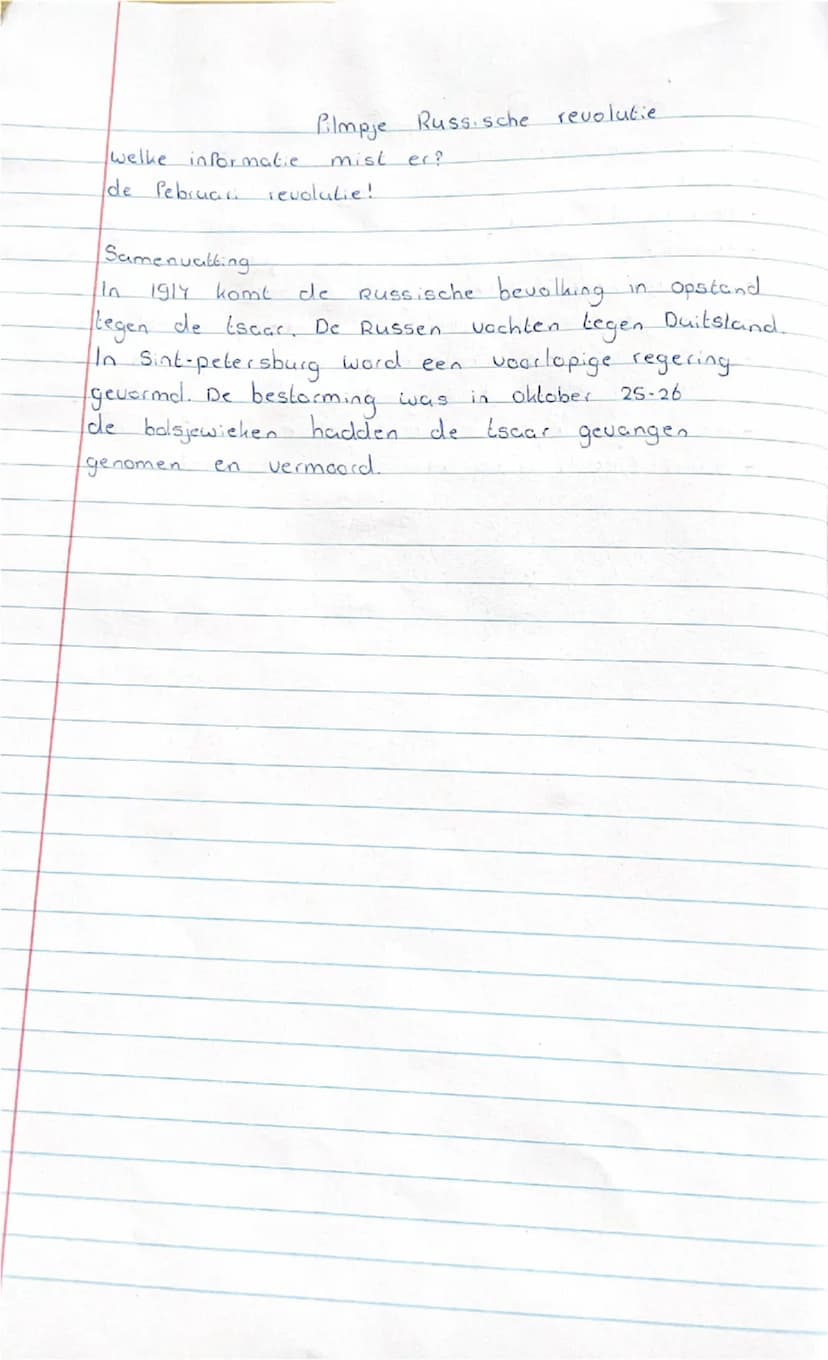 filmpje Russische revolutie
welke informatie mist er?
de februari revolutie!
Samenvatting
In 1917 komt de Russische bevolking in opstand
tegen de tsaar. De Russen vochten tegen Duitsland.
In Sint-petersburg word een voorlopige regering
gevormd. De bestorming was in oktober 25-26
de bolsjewieken hadden de tsaar gevangen
genomen en vermoord.